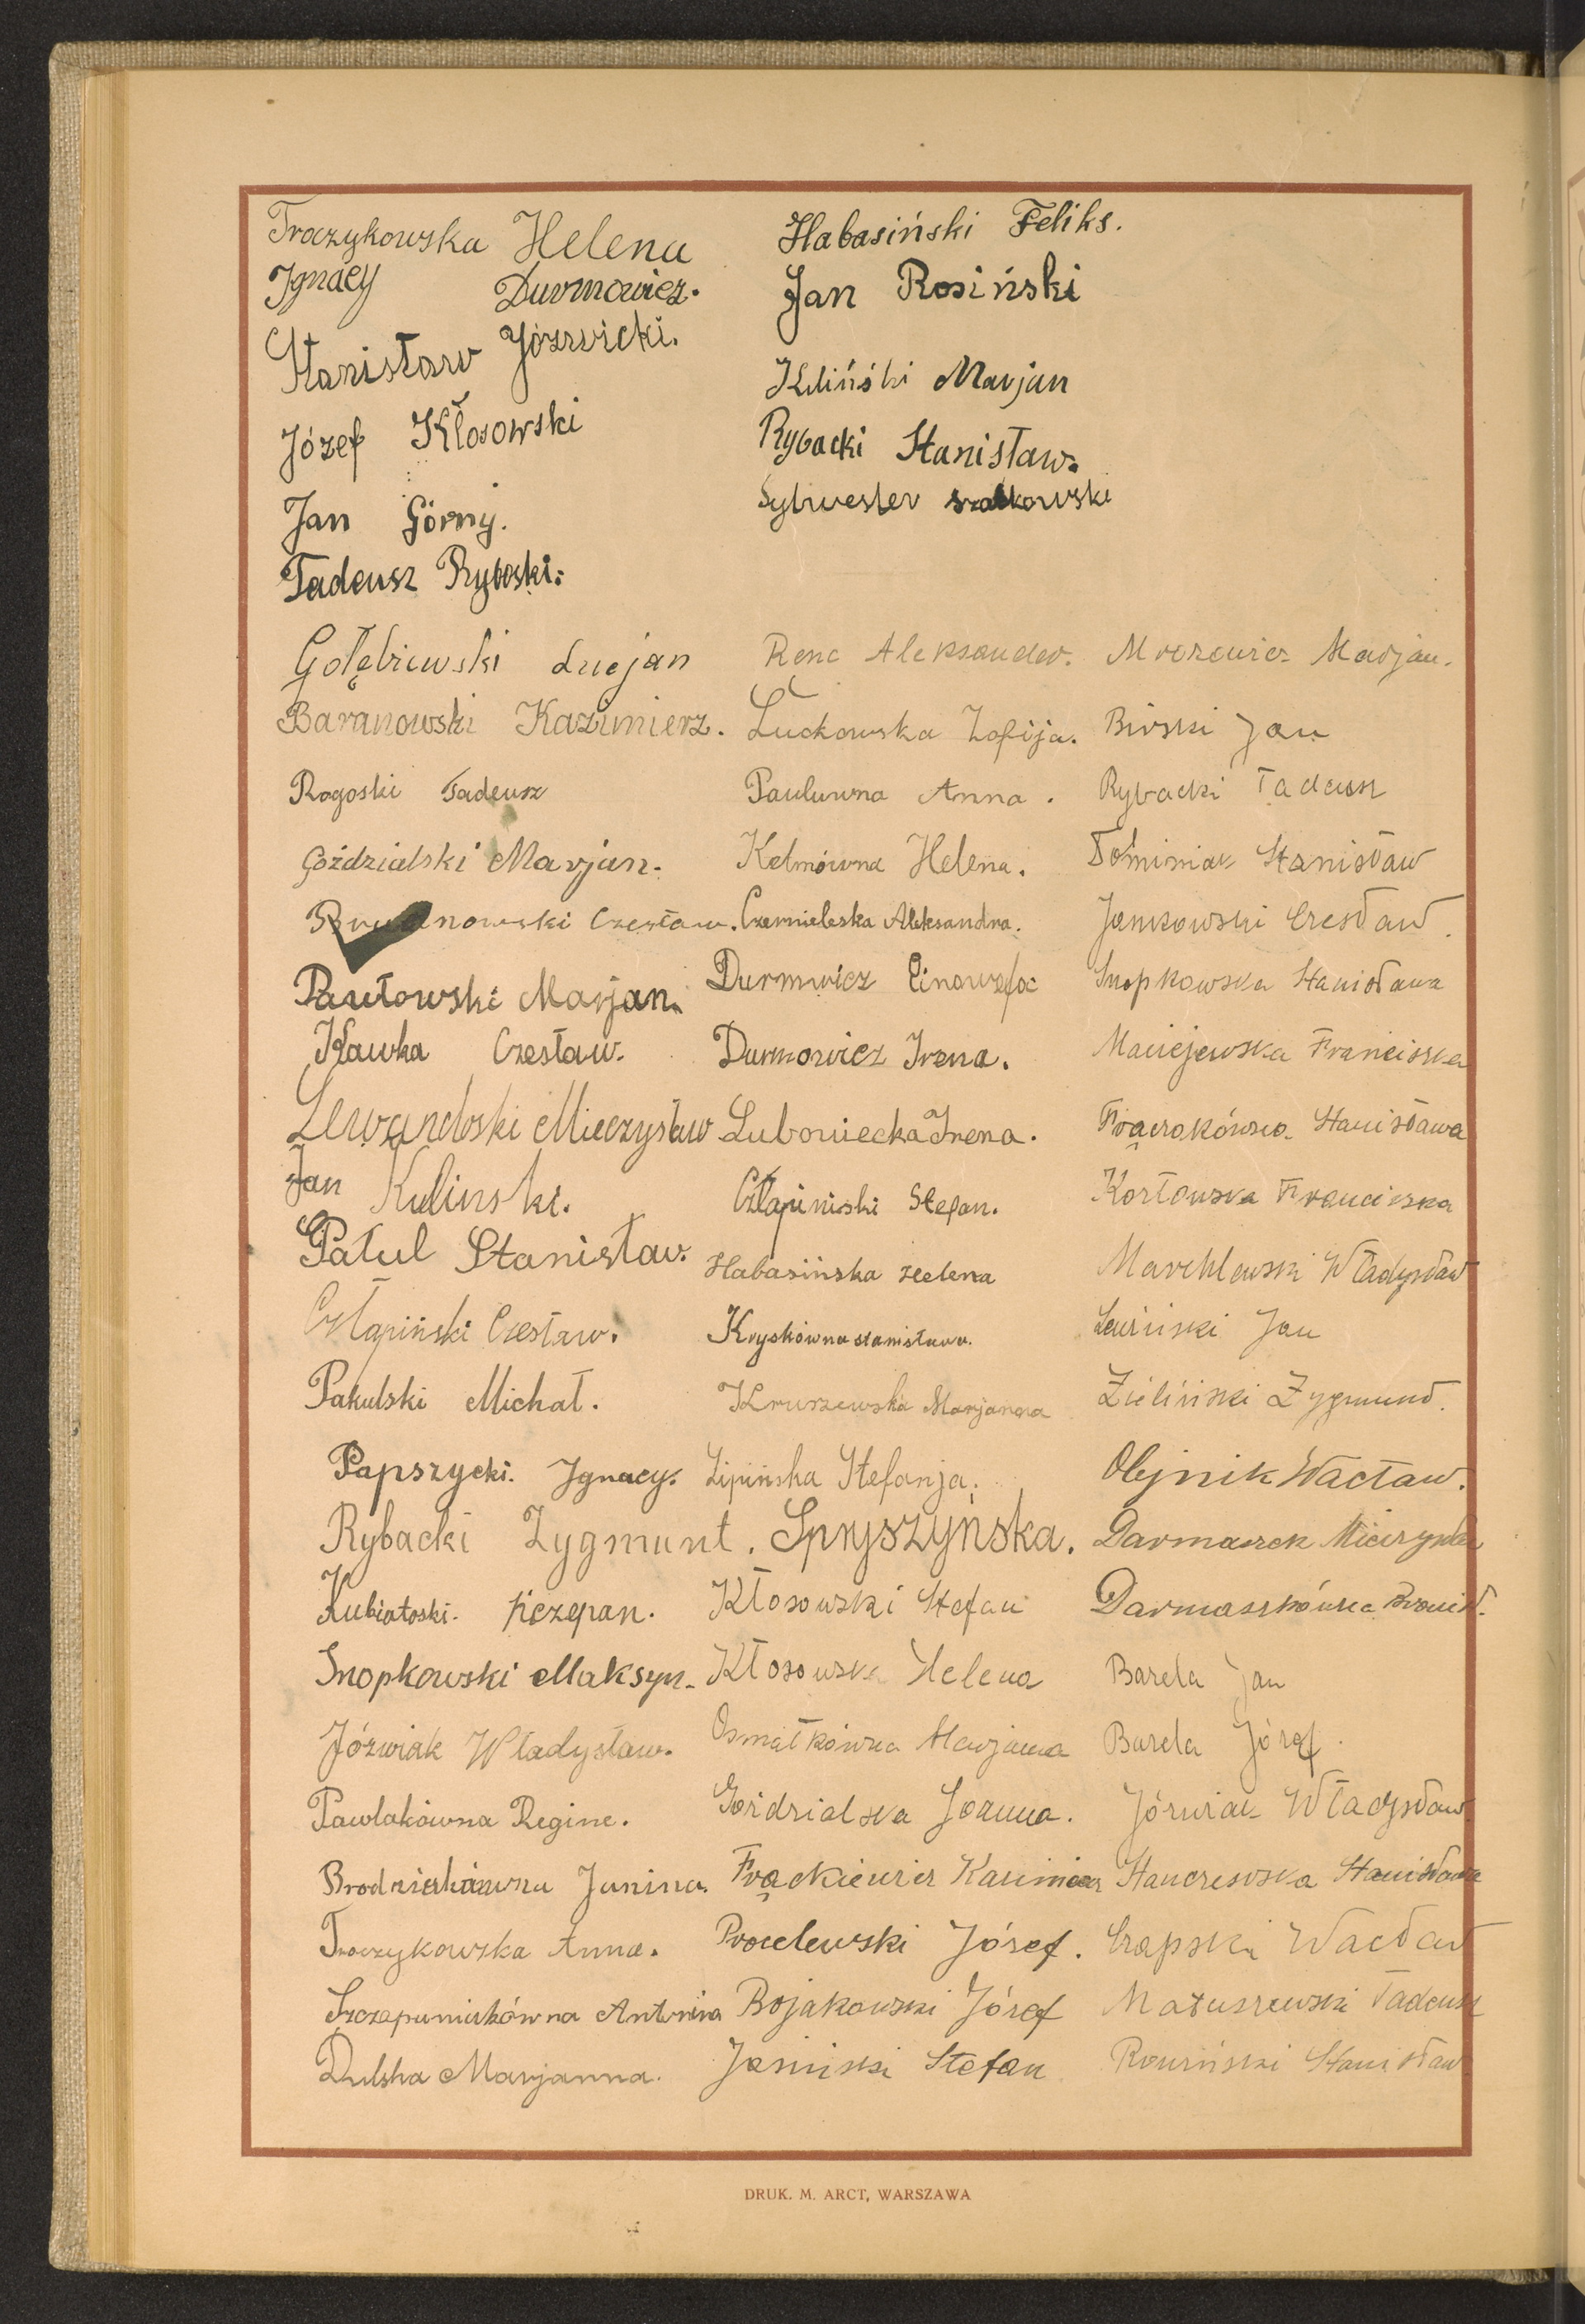 Troczykowska Helena
Ignacy Durmowicz.
Stanisław Józwicki.
Józef Kłosowski
Jan Górny.
Tadeusz Ryboski.
Habasiński Feliks.
Jan Rosiński
Kiliński Marjan
Rybacki Stanisław.
Sylwester
Gołębiewski Lucjan
Baranowski Kazimierz.
Rogoski Tadeusz
Góździalski Marjan.
Czesław.
Pawłowski Marjan.
Kawka Czesław.
Lewandoski Mieczysław
Jan Kulinski.
Patul Stanisław.
Człapiński Czesław.
Pakulski Michał.
Papszycki. Ignacy.
Rybacki Zygmunt.
Kubiatoski. Szczepan.
Snopkowski Maksym.
Józwiak Władysław.
Pawlakówna Regine.
Janina.
Troczykowska Anna.
Antonina
Dulska Marjanna.
Renc Aleksander.
Luckowska Zofija.
Pauluwna Anna.
Kelmówna Helena.
Czernieleska Aleksandra.
Durmwicz
Durmowicz Irena.
Luboniecka Irena.
Człapiniski Stefan.
Habasińska Helena
Kryskówna Stanisława.
Kruszewska Marjanna
Lipińska Stefanja.
Spryszyńska.
Kłosowski Stefan
Kłosowska Helena
Osmałkówna Marjanna
Goździalska Joanna.
Frąckiewicz Kazimierz
Józef.
Bojakowski Józef
Jasiński Stefan
Mrozewicz Marjan.
Birski Jan
Rybacki Tadeusz
Tominiak Stanisław
Jankowski Czesław.
Snopkowska Stanisława
Maciejewska Franciszka
Stanisława
Kozłowska Franciszka
Marchlewski Władysław
Lewiński Jan
Zieliński Zygmund.
Olejnik Wacław.
Darmaszek
Darmaszkówna Bronisł.
Barela Jan
Barela Józef.
Józwiak Władysław
Stanczewska Stanisława
Czapski Wacław
Matuszewski Tadeusz
Rowiński Stanisław
DRUK. M. ARCT, WARSZAWA